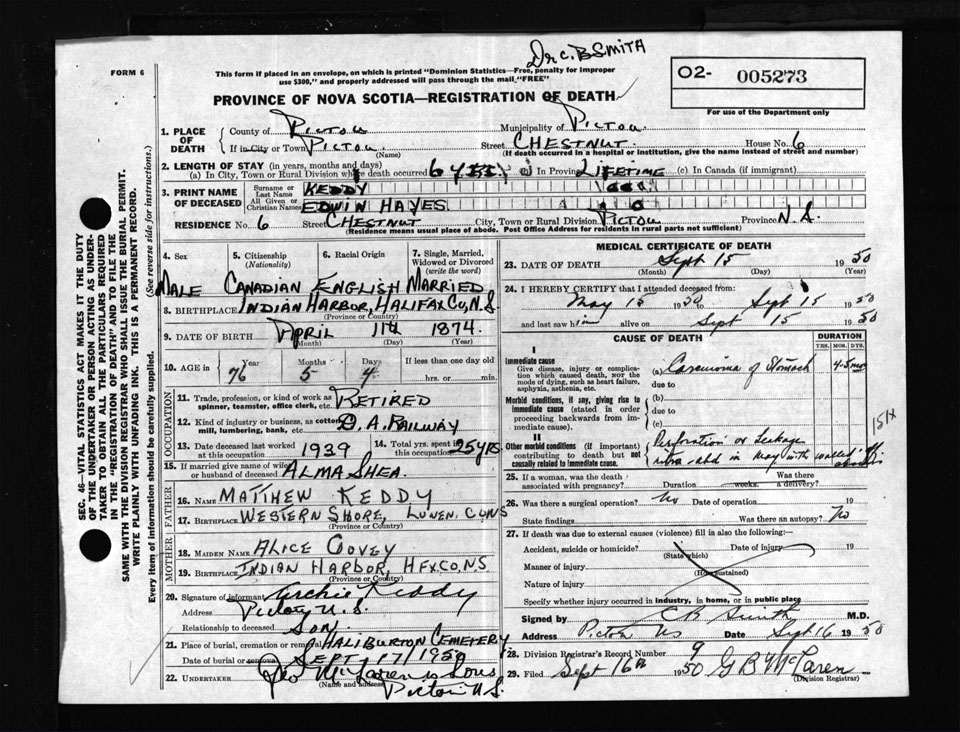 Dr. C. B SMITH
FORM 6
This form if placed in an envelope, on which is printed "Dominion Statistics—Free, penalty for improper
use $300," and properly addressed will pass through the mail, "FREE"
O2- 005273
For use of the Department only
PROVINCE OF NOVA SCOTIA—REGISTRATION OF DEATH
SEC. 46—VITAL STATISTICS ACT MAKES IT THE DUTY
OF THE UNDERTAKER OR PERSON ACTING AS UNDER-
TAKER TO OBTAIN ALL THE PARTICULARS REQUIRED
IN THE "REGISTRATION OF DEATH" AND TO FILE THE
SAME WITH THE DIVISION REGISTRAR WHO SHALL ISSUE THE BURIAL PERMIT.
WRITE PLAINLY WITH UNFADING INK. THIS IS A PERMANENT RECORD.
Every item of information should be carefully supplied. (See reverse side for instructions.)
1. PLACE OF DEATH County of PICTOU Municipality of PICTOU.
If in City or Town PICTOU (Name) Street CHESTNUT. House No. 6
(If death occurred in a hospital or institution, give the name instead of street and number)
2. LENGTH OF STAY (in years, months and days)
(a) In City, Town or Rural Division where death occurred 6 YRS. (b) In Province LIFETIME (c) In Canada (if immigrant)
3. PRINT NAME OF DECEASED Surname or Last Name KEDDY
All Given or Christian Names EDWIN HAYES
RESIDENCE No. 6 Street CHESTNUT City, Town or Rural Division PICTOU Province N.S.
(Residence means usual place of abode. Post Office Address for residents in rural parts not sufficient)
4. Sex 5. Citizenship (Nationality) 6. Racial Origin 7. Single, Married, Widowed or Divorced (write the word)
MALE CANADIAN ENGLISH MARRIED
8. BIRTHPLACE INDIAN HARBOR, HALIFAX CO, N.S
(Province or Country)
9. DATE OF BIRTH APRIL 11th 1874.
(Month) (Day) (Year)
10. AGE in Years Months Days If less than one day old
76 5 4 hrs. or min.
OCCUPATION
11. Trade, profession, or kind of work as
spinner, teamster, office clerk, etc. RETIRED
12. Kind of industry or business, as cotton
mill, lumbering, bank, etc. D. A. RAILWAY
13. Date deceased last worked
at this occupation 1939 14. Total yrs. spent in
this occupation 25 yrs
15. If married give name of wife
or husband of deceased ALMA SHEA.
FATHER
16. NAME MATTHEW KEDDY
17. BIRTHPLACE WESTERN SHORE, LUNEN. CO NS
(Province or Country)
MOTHER
18. MAIDEN NAME ALICE COVEY
19. BIRTHPLACE INDIAN HARBOR, HFX CO, NS
(Province or Country)
20. Signature of informant Archie Keddy
Address Pictou N.S.
Relationship to deceased SON.
21. Place of burial, cremation or removal HALIBURTON CEMETERY
Date of burial or removal SEPT 17/1950
22. UNDERTAKER Geo McLaren & Sons
(Name and address) Pictou N S.
MEDICAL CERTIFICATE OF DEATH
23. DATE OF DEATH Sept 15 1950
(Month) (Day) (Year)
24. I HEREBY CERTIFY that I attended deceased from:
May 15 1950 to Sept 15 1950
and last saw him alive on Sept 15 1950
CAUSE OF DEATH DURATION
YRS. MOS. DYS.
I
Immediate cause
Give disease, injury or complica-
tion which caused death, not the
mode of dying, such as heart failure,
asphyxia, asthenia, etc.
(a) Carcinoma of Stomach 4-5 mos
due to
Morbid conditions, if any, giving rise to
immediate cause (stated in order
proceeding backwards from im-
mediate cause).
(b)
due to
(c)
151X
II
Other morbid conditions (if important)
contributing to death but not
causally related to immediate cause.
Perforation or Leakage
intra-abd in May with walled off
25. If a woman, was the death
associated with pregnancy? Duration weeks. Was there a delivery?
26. Was there a surgical operation? No Date of operation 19
State findings Was there an autopsy? No
27. If death was due to external causes (violence) fill in also the following:
Accident, suicide or homicide? (State which) Date of injury 19
Manner of injury (How sustained)
Nature of injury
Specify whether injury occurred in industry, in home, or in public place
Signed by C B Smith M.D.
Address Pictou NS Date Sept 16 1950
28. Division Registrar's Record Number 9
29. Filed Sept 16th 1950 G B McLaren
(Division Registrar)